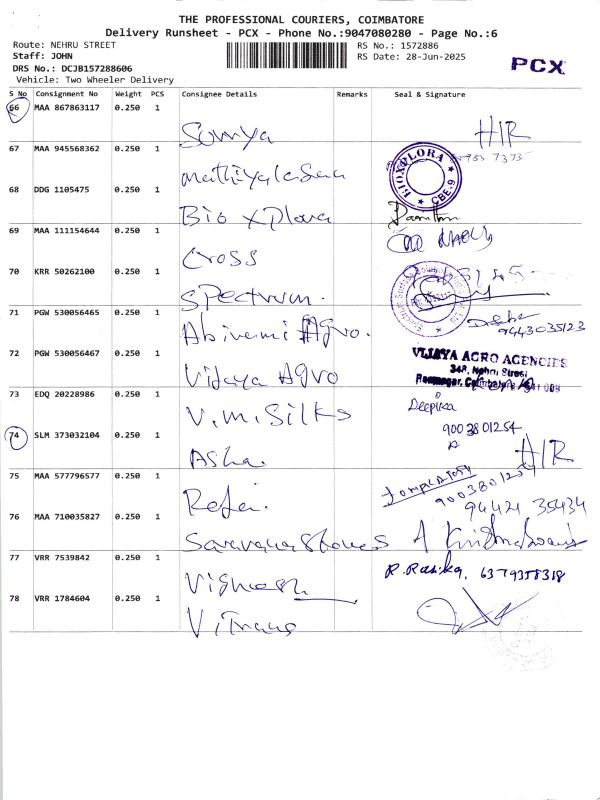 THE PROFESSIONAL COURIERS, COIMBATORE
Delivery Runsheet - PCX - Phone No.:9047080280 - Page No.:6
Route: NEHRU STREET RS No.: 1572886
Staff: JOHN RS Date: 28-Jun-2025
DRS No.: DCJB157288606 PCX
Vehicle: Two Wheeler Delivery
S No Consignment No Weight PCS Consignee Details Remarks Seal & Signature
66 MAA 867863117 0.250 1
Sumya H/R
67 MAA 945568362 0.250 1
BIOXPLORA CBE-9
68 DDG 1105475 0.250 1
Bio xplora
69 MAA 111154644 0.250 1
Cross
70 KRR 50262100 0.250 1
Spectrum.
71 PGW 530056465 0.250 1
Abirami Agro. 9443035123
72 PGW 530056467 0.250 1 VIJAYA AGRO AGENCIES
348, Nehru Street
Vijaya Agro Ramnagar, Coimbatore
73 EDQ 20228986 0.250 1
Deepika
V.M. Silks
9003801254
74 SLM 373032104 0.250 1
Asha. H/R
75 MAA 577796577 0.250 1
9003801254
94421 35434
76 MAA 710035827 0.250 1
Saravana Stores
77 VRR 7539842 0.250 1
R. Rasika, 6379358318
Vignesh
78 VRR 1784604 0.250 1